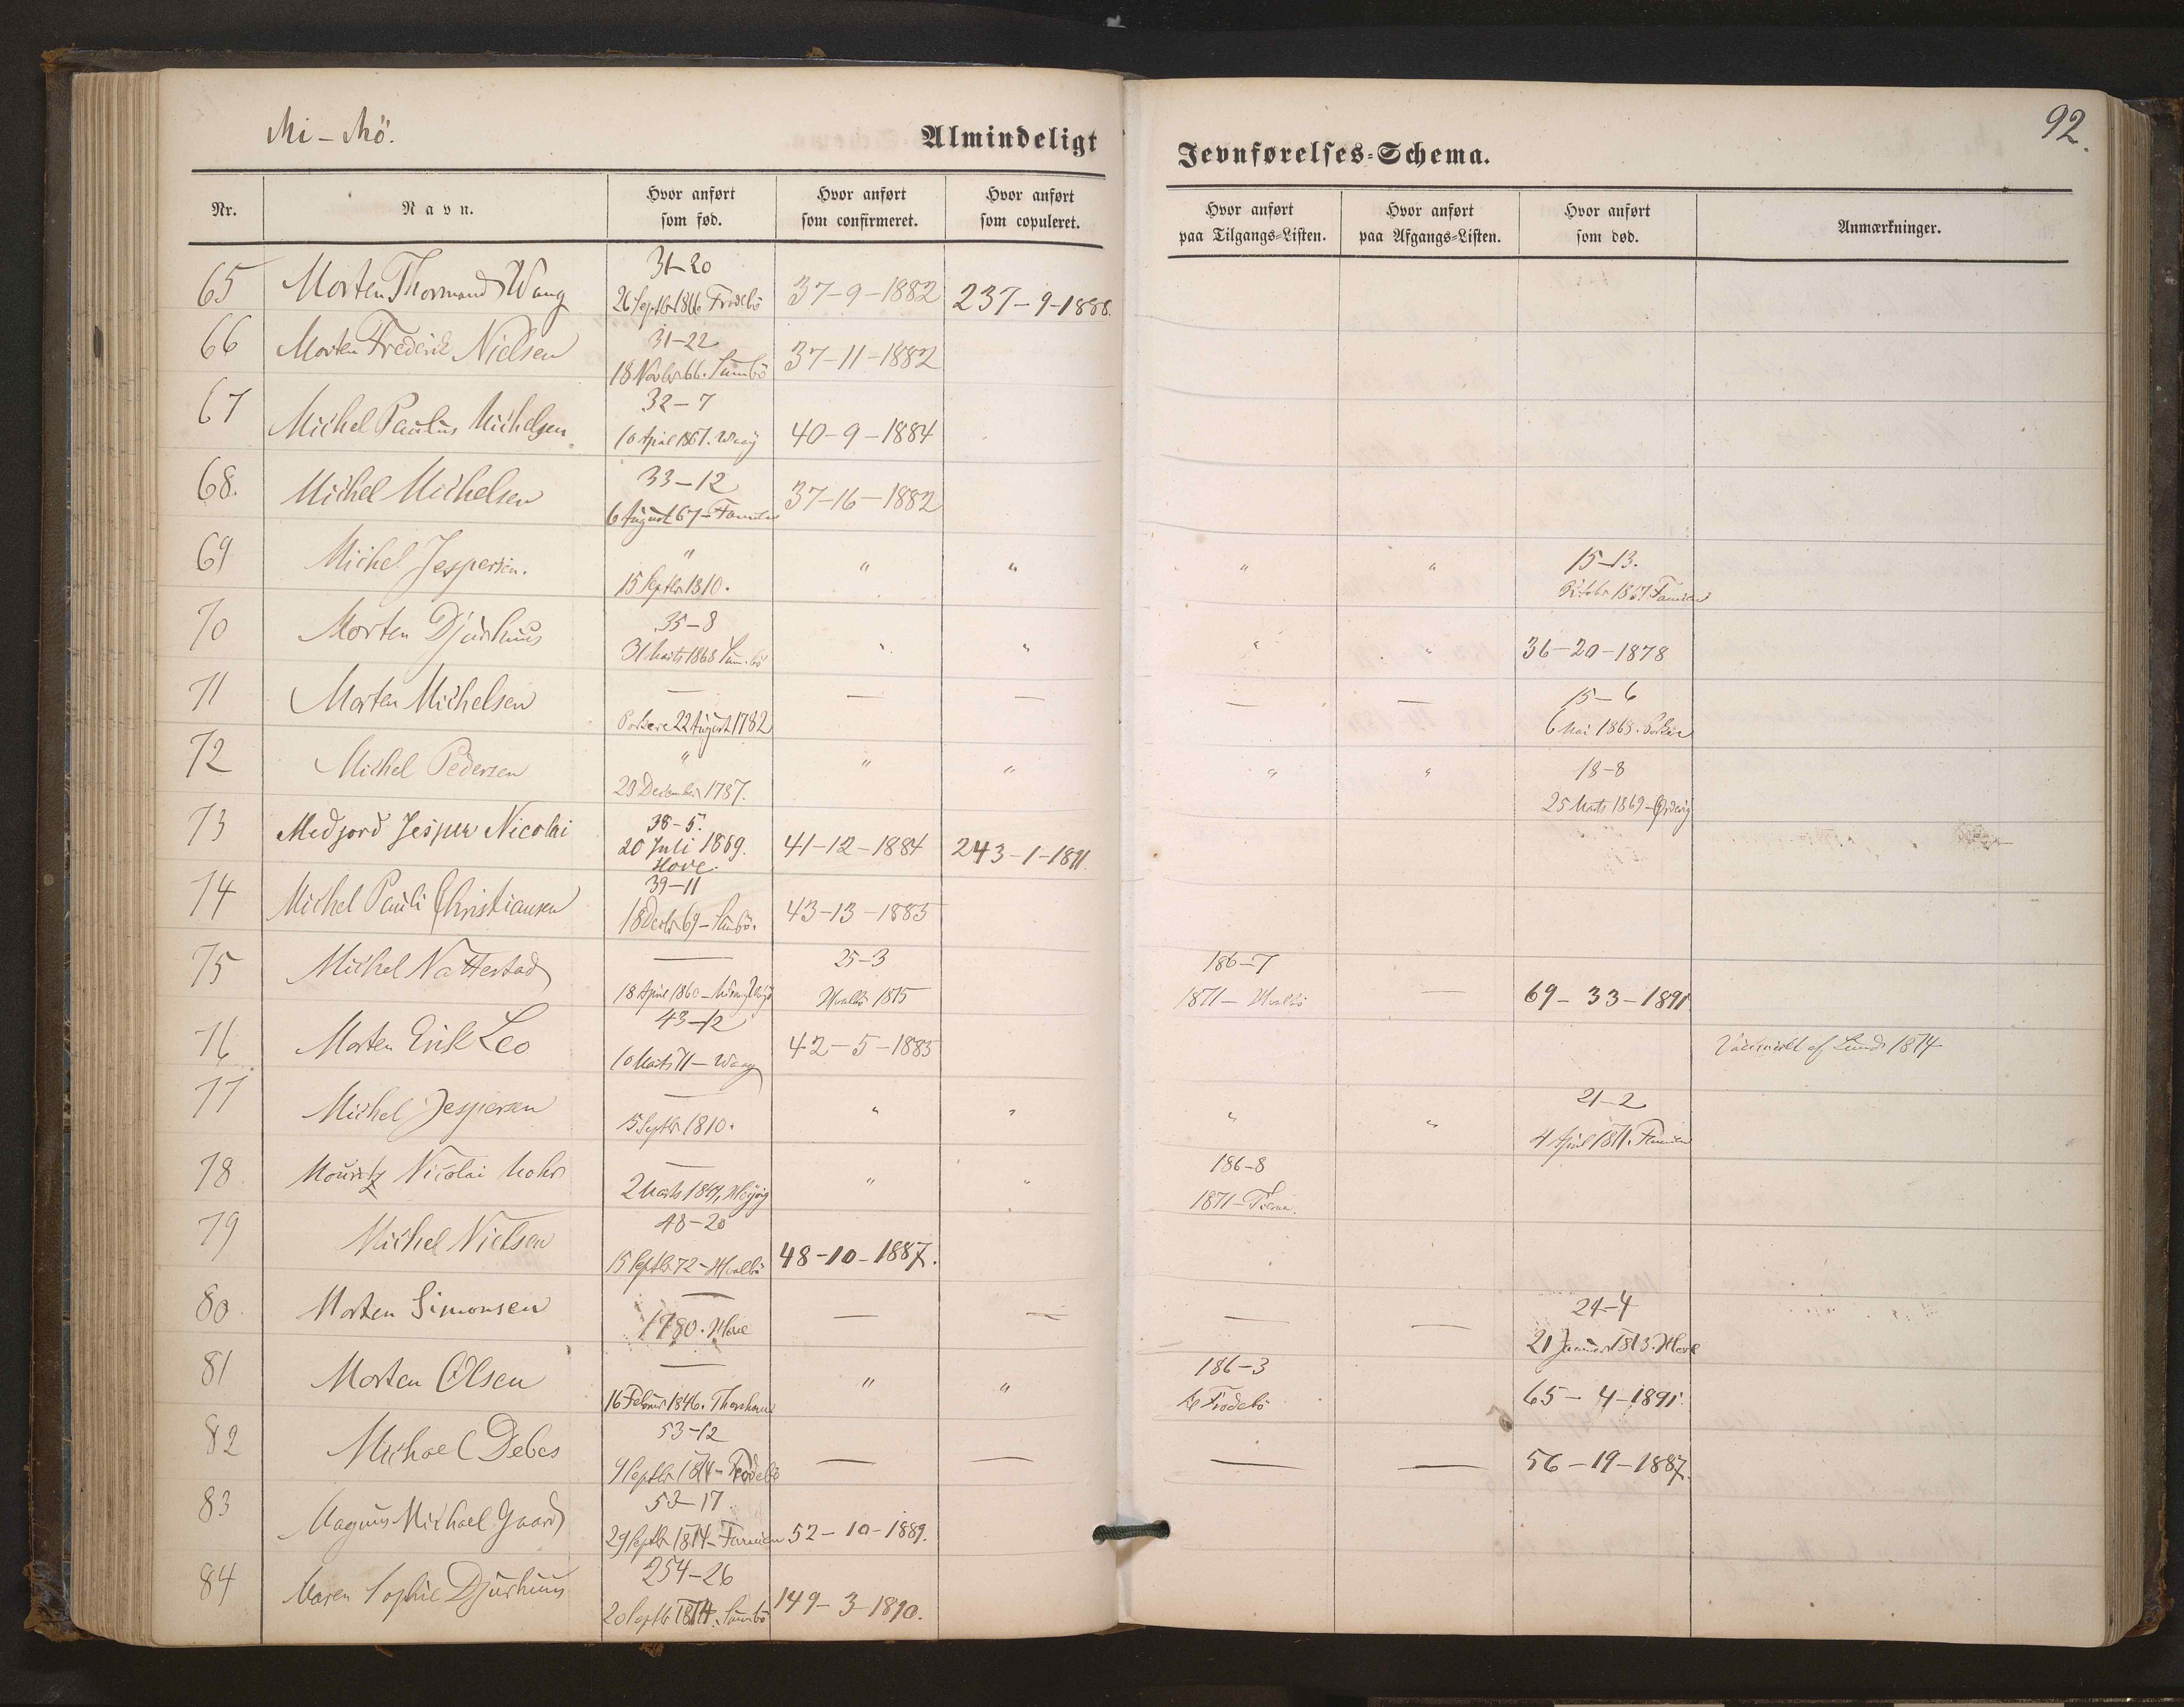 Mi - Mö.
Almindeligt
Jevnførelses=Schema.
92.
Nr.
Navn.
Hvor anført som fød.
Hvor anført som confirmeret.
Hvor anført som copuleret.
Hvor anført paa Tilgangs=Listen.
Hvor anført paa Afgangs=Listen.
Hvor anført som død.
Anmærkninger.
31-20
65 Morten Thormand Wang 26 Septbr 1866 Frodebö 37-9-1882 237-9-1888.
31-22
66 Morten Frederik Nielsen 18 Novbr 66. Sumbö 37-11-1882
32-7
67 Michel Paulus Michelsen 10 April 1867. Waag 40-9-1884
33-12
68. Michel Michelsen 6 August 67 - 37-16-1882
69 Michel Jespersen. " " " " " 15-13.
15 Septbr 1810. 1867
35-8
70 Morten Djurhuus 31 Marts 1868 Sumbö " " " " 36-20-1878
71 Morten Michelsen — — — — — 15-6
Porkere 22 August 1782 6 Mai 1868. Porkere
72 Michel Pedersen " " " " " 18-8
1787. 25 Marts 1869 -
38-5.
73 Medjord Jesper Nicolai 20 Juli 1869. 41-12-1884 243-1-1891.
Hove.
39-11
74 Michel Pauli Christiansen 18 Decbr 69 - Sumbö. 43-13-1885
75 Michel Nattestad — 25-3 186-7
18 April 1860 - Hvalbö 1875 1871 - Hvalbö — 69-33-1891
43-12
76 Morten Erik Leo 10 Marts 71 - Waag 42-5-1885 af Lund 1874
77 Michel Jespersen — " " " " 21-2
15 Septbr 1810. 4 April 1871.
78 Mouritz Nicolai Mohr — " " 186-8
2 Marts 1871 -
48-20
79 Michel Nielsen 15 Septbr 72 - Hvalbö 48-10-1887.
80 Morten Simonsen — — — — — 24-4
1780. Hove 21 Januar 1873. Hove
81 Morten Olsen — " " 186-3
16 Februar 1846. Thorshavn Frodebö 65-4-1891.
53-12
82 Michael Debes Septbr 1874 - Frodebö — — — — 56-19-1887.
53-17
83 Magnus Michael Gaard 29 Septbr 1874 - 52-10-1889.
254-26
84 Maren Sophie Djurhuus 20 Septbr 1874. Sumbö 149-3-1890.